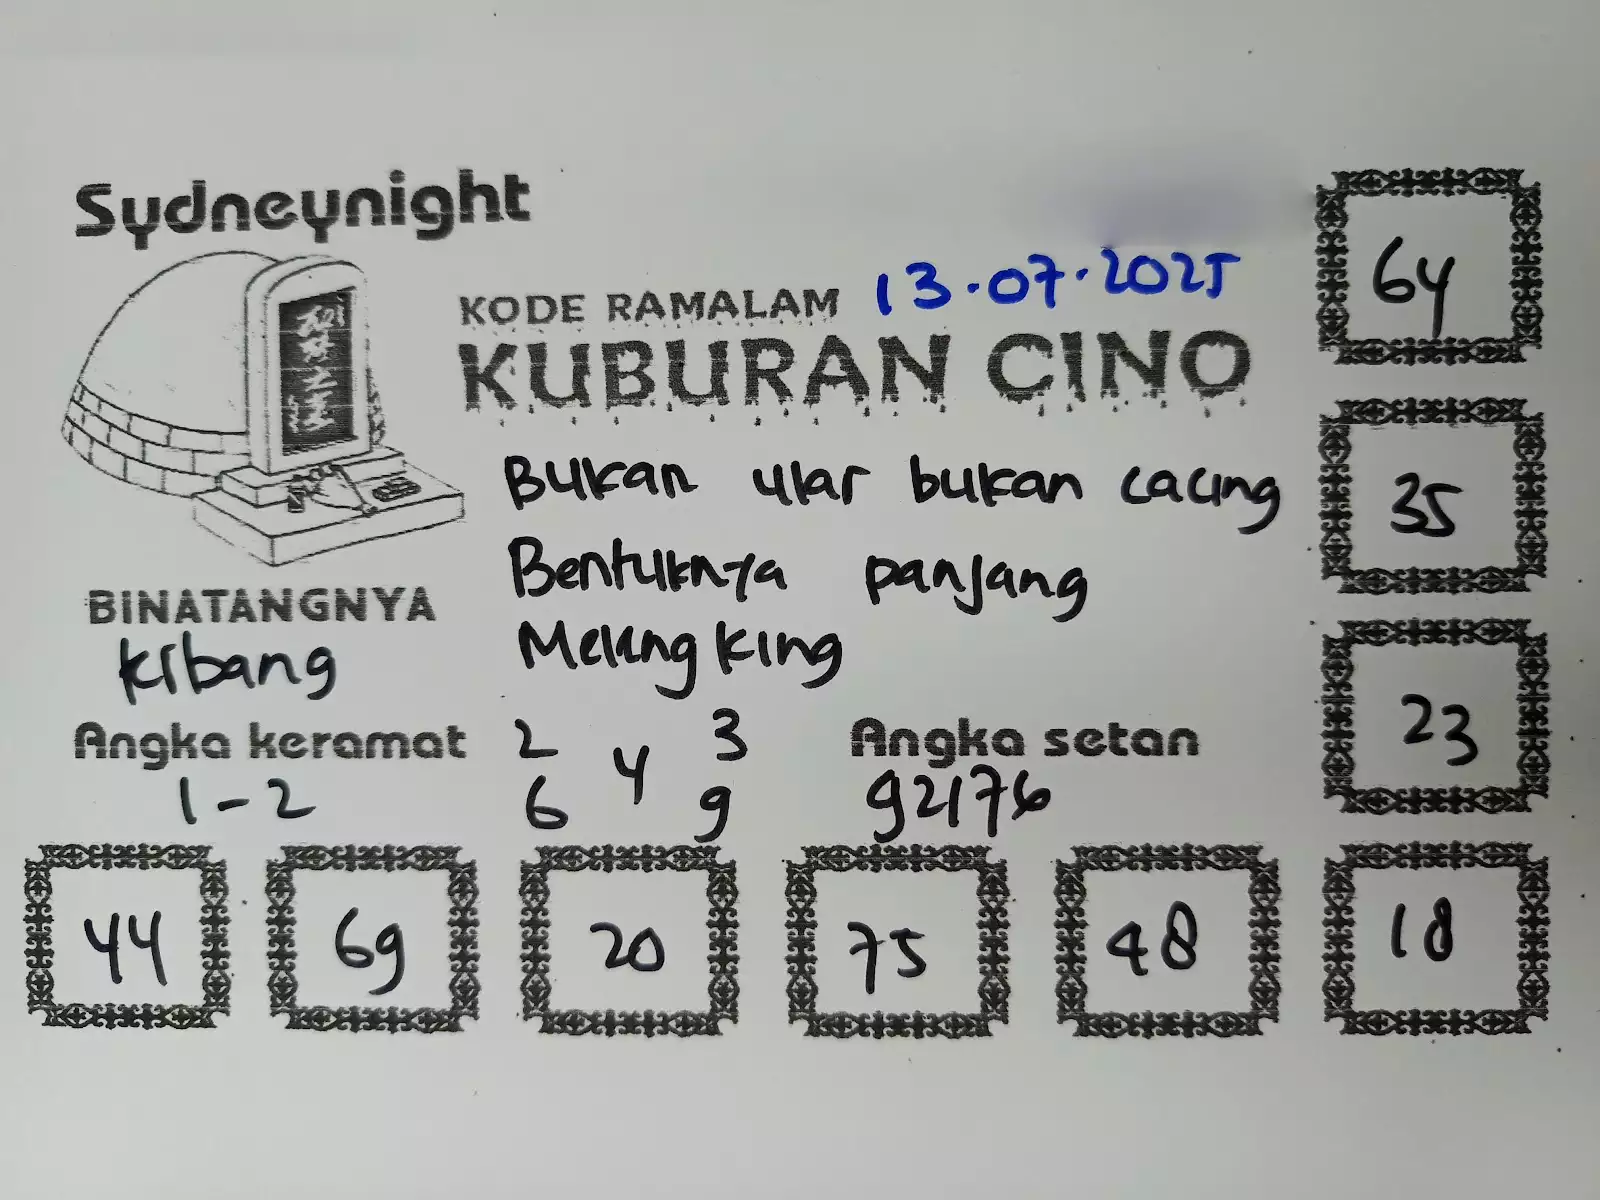 Sydneynight
13.07.2025
KODE RAMALAM
KUBURAN CINO
64
Bukan ular bukan cacing
35
Bentuknya panjang
BINATANGNYA
Melengking
kibang
23
Angka keramat
2 3
4
6 9
Angka setan
1-2
92176
44 69 20 75 48 18